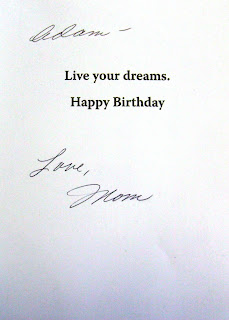 Adam –
Live your dreams.
Happy Birthday
Love,
Mom